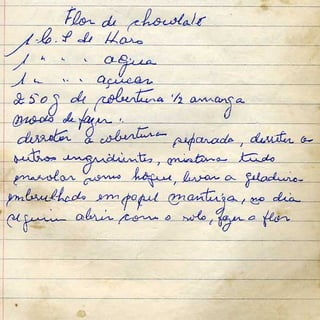 Flor de chocolate
1 C. S de Karo
1 " " " agua
1 " " " açucar
250g de cobertura ½ amarga
modo de fazer.
derreter a cobertura separada, derreter os
outros ingridientes, mistura tudo
enrolar como, levar a geladeira
embrulhado em papel manteiga, no dia
seguim abrir com o rolo, fazer a flor